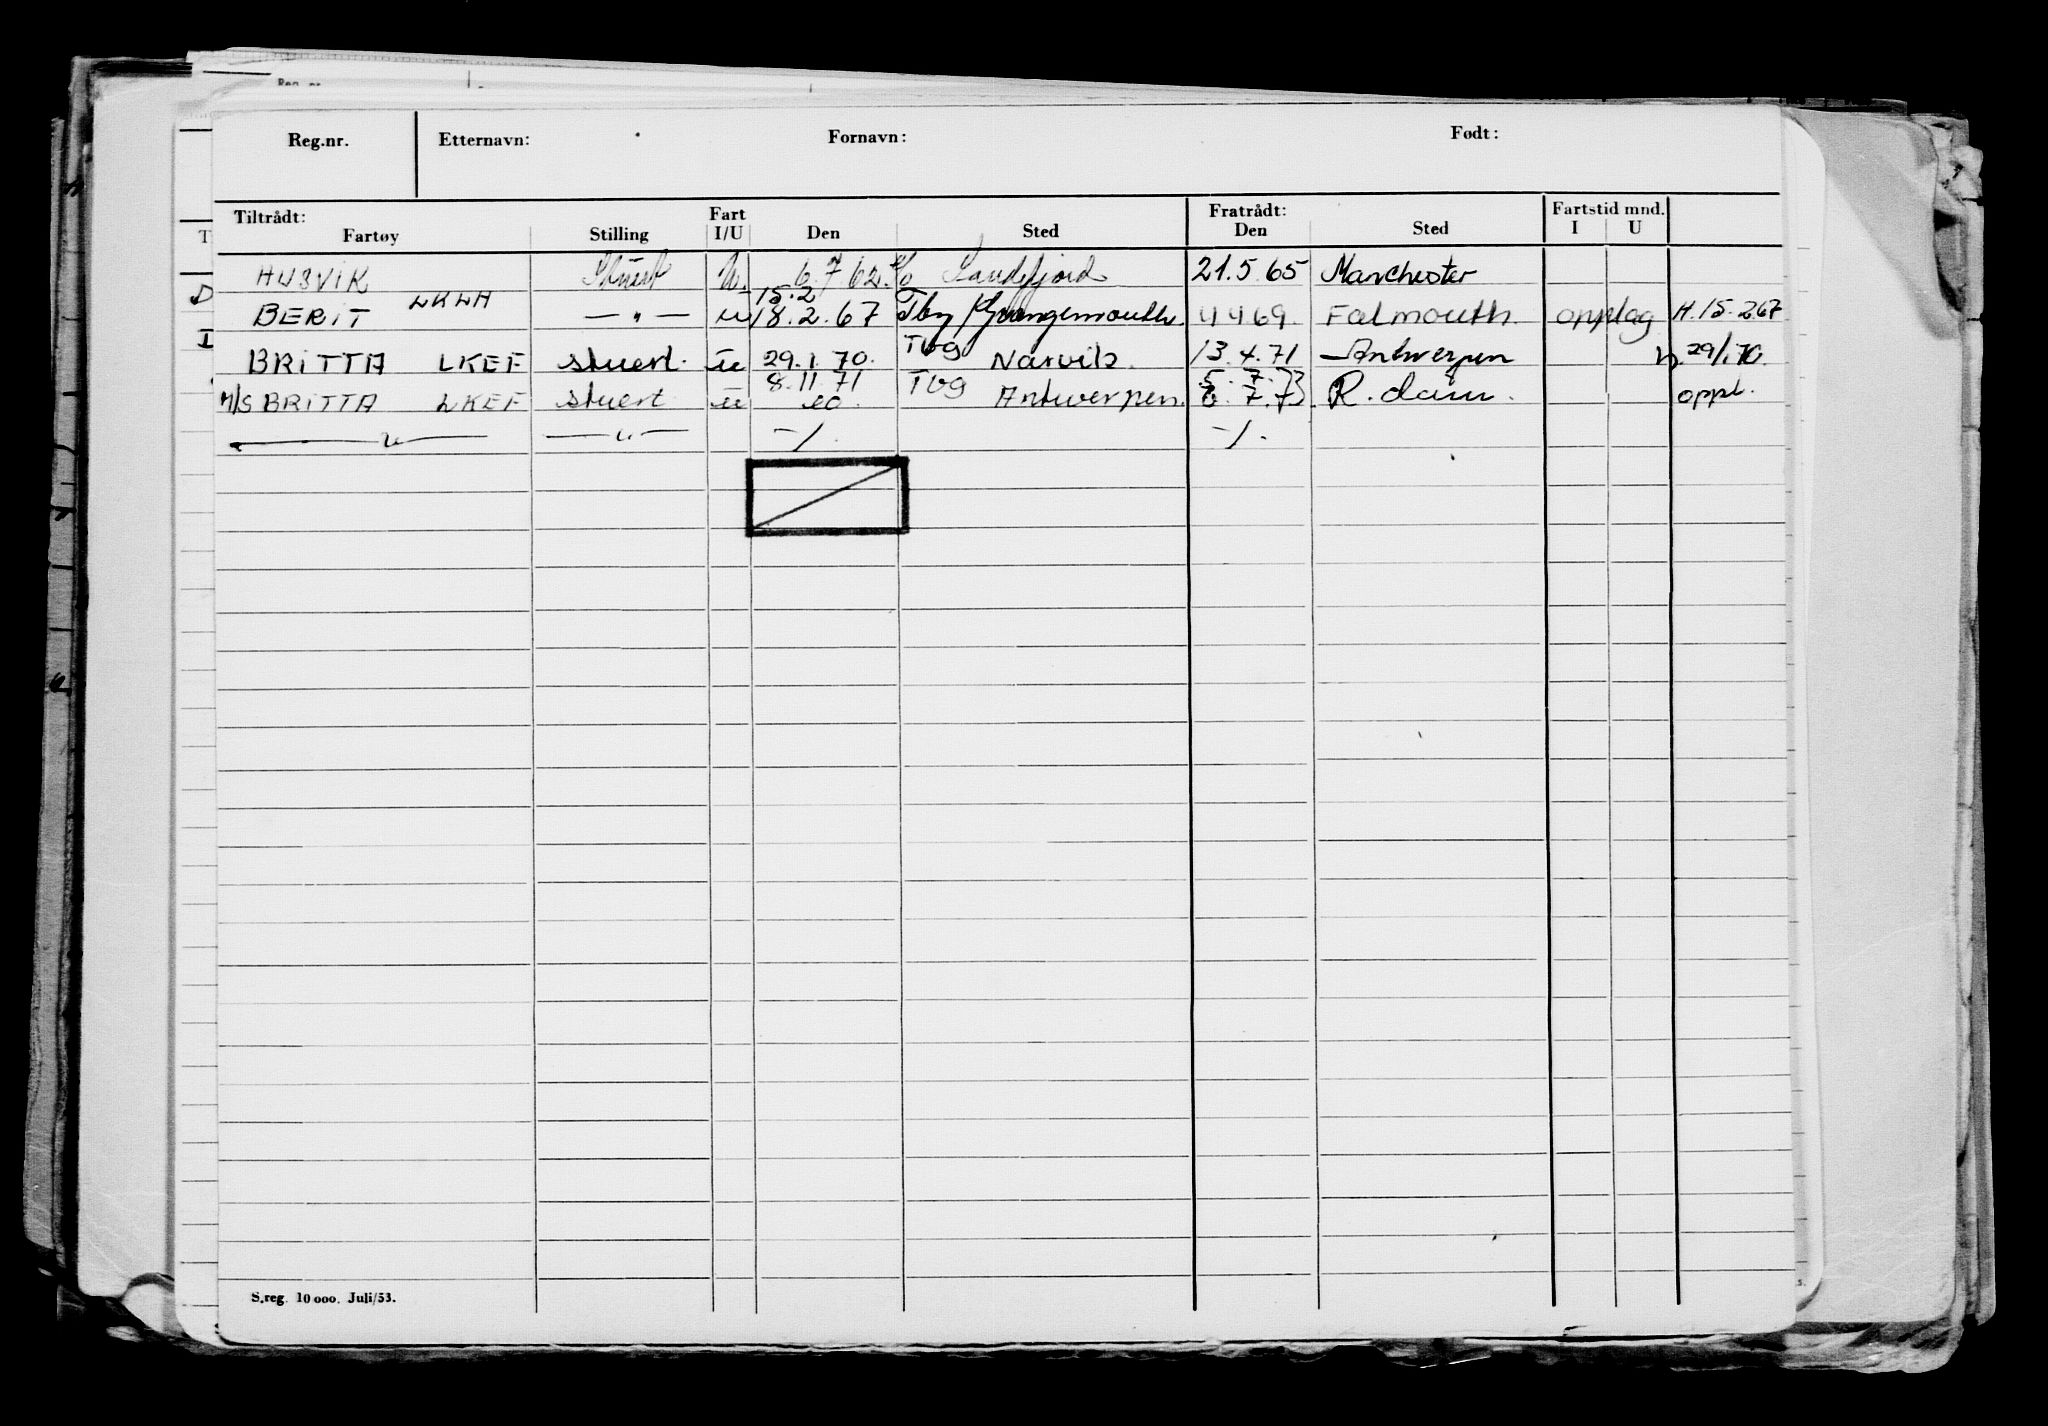 Reg.nr. Etternavn: Fornavn: Født:
Tiltrådt: Fart Fratrådt: Fartstid mnd.
Fartøy Stilling I/U Den Sted Den Sted I U
HUSVIK Stuert U. 6.7 62. Sandefjord 21.5.65 Manchester
15.2
BERIT LKLH — " — u 18.2.67 Tbg / Grangemouth. 4 4 69. Falmouth. opplag H.15.2.67
BRITTA LKEF stuert. u 29.1.70. TVG Narvik. 13.4.71 Antwerpen 29/1.70.
8.11.71 5.7.73
M/S BRITTA LKEF stuert u TVG Antwerpen. 6.7.73. R.dam. oppl.
— " — — " — -/. -/.
S.reg. 10 000. Juli/53.